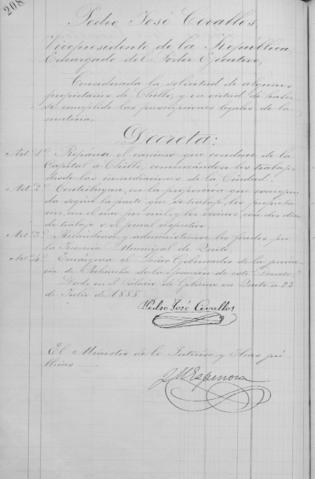 208
Pedro José Cevallos,
Vicepresidente de la República
Encargado del Poder Ejecutivo,
Considerada la solicitud de algunos
propietarios de Chillo, y en virtud de haber
se cumplido las prescripciones legales de la
materia.
Decreta:
Art. 1º Repárase el camino que conduce de la
Capital á Chillo, comenzándose los trabajos
desde las inmediaciones de la Ciudad.
Art. 2º Contribuyan, en la proporción que
según la parte que se trabaje, los propieta
rios, con el uno por mil, y los con dos días
de trabajo ó el jornal respectivo.
Art. 3º y administrense los fondos por
la Tesorería Municipal de Quito.
Art. 4º el Señor Gobernador de la provin
cia de Pichincha de la ejecución de este Decreto.
Dado en el Palacio de Gobierno en Quito á 23
de Julio de 1888.
Pedro José Cevallos
El Ministro de lo Interior y Obras pú
blicas
J. M. Espinosa